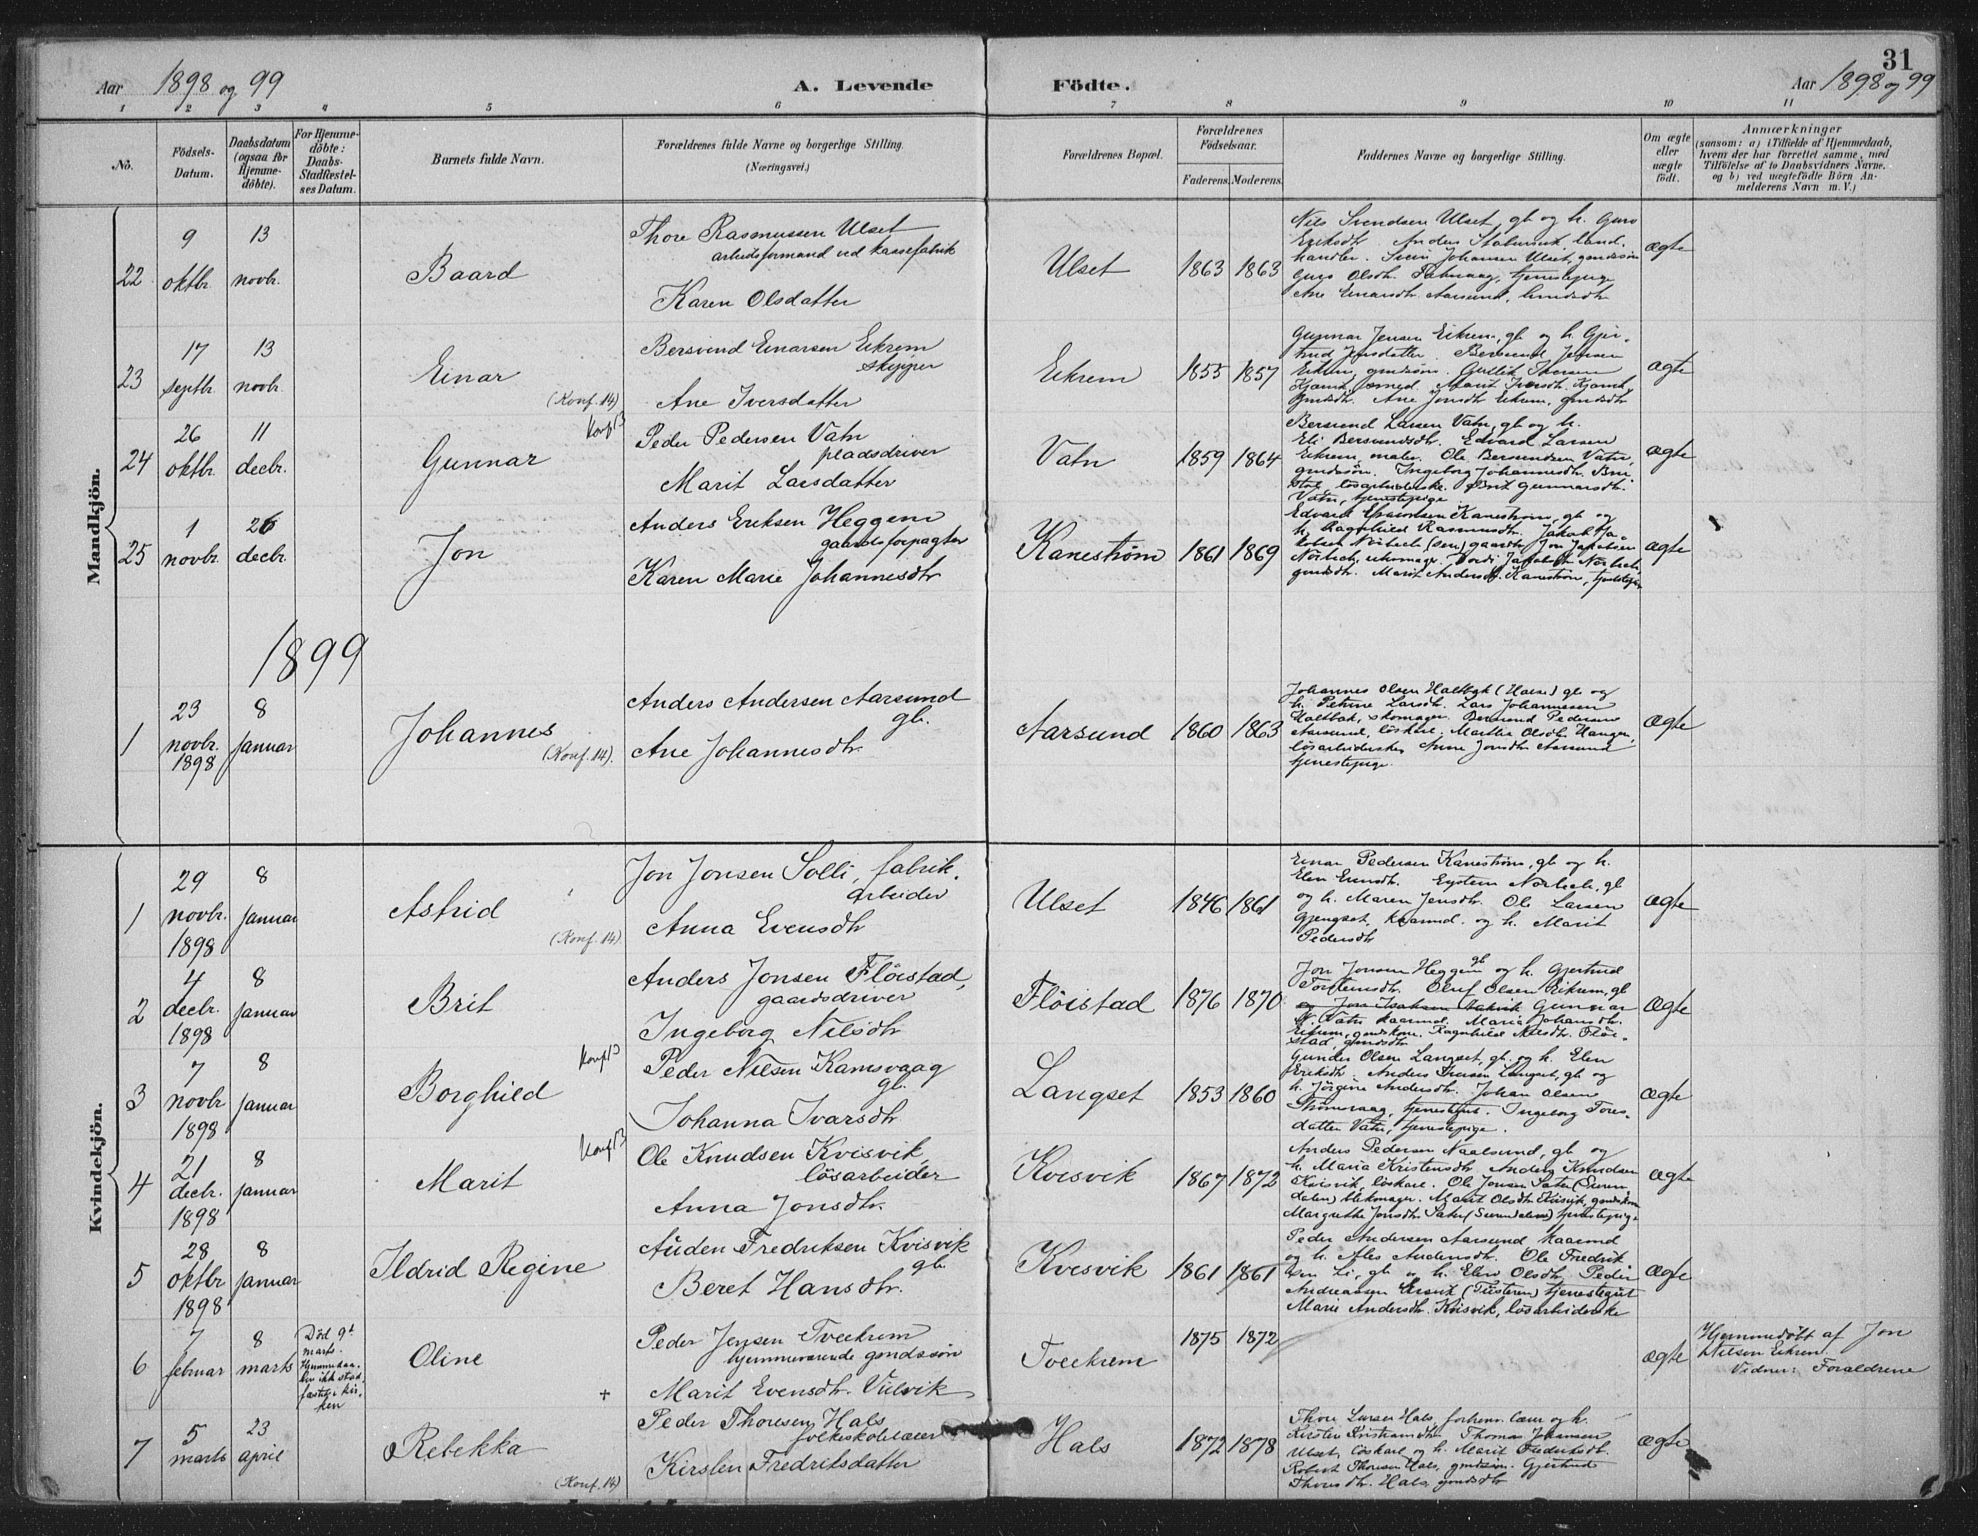 31
Aar 1898 og 99
A. Levende Födte.
Aar 1898 og 99
1 2 3 4 5 6 7 8 9 10 11
No.
Födsels-
Datum.
Daabsdatum
(ogsaa for
Hjemme-
döbte).
For Hjemme-
döbte:
Daabs-
Stadfæstel-
ses Datum.
Barnets fulde Navn.
Forældrenes fulde Navne og borgerlige Stilling.
(Næringsvei.)
Forældrenes Bopæl.
Forældrenes
Födselsaar.
Faderens. Moderens.
Faddernes Navne og borgerlige Stilling.
Om ægte
eller
uægte
födt.
Anmærkninger
(saasom: a) i Tilfælde af Hjemmedaab,
hvem der har forrettet samme, med
Tilföielse af to Daabsvidners Navne,
og b) ved uægtefödte Börn An-
melderens Navn m. V.)
Mandkjön.
22
9
oktbr.
13
novbr.
Baard
Thore Rasmussen Ulset
arbeidsformand ved kassefabrik
Karen Olsdatter
Ulset
1863 1863
Nils Svendsen Ulset, gb og h. Guro
Eriksdtr. Anders land-
handler. Svein Johansen Ulset, gmdssøn
Guro Olsdtr. tjenestepige
Ane Einarsdtr. Aarsund, gmdsdtr
ægte
23
17
septbr.
13
novbr.
Einar
(Konf. 14)
Bersvend Einarsen Eikrem
skipper
Ane Iversdatter
Eikrem
1855 1857
Gunnar Jensen Eikrem, gb og h. Gjer-
trud Jensdatter. Bersvend Jensen
Eikrem, gmdssøn.
Marit Iversdtr.
gmdsdtr. Ane Jonsdtr Eikrem, gmdsdtr
ægte
24
26
oktbr.
11
decbr.
Gunnar
Konf 13
Peder Pedersen Vatn
pladsdriver
Marit Larsdatter
Vatn
1859 1864
Bersvend Larsen Vatn, gb og h.
Eli Bersvendsdtr. Edvard Larsen
Eikrem, maler. Ole Bersvendsen Vatn,
gmdssøn. Ingeborg Johannesdtr.
løsarbeiderske. Brit Gunnarsdtr.
Vatn, tjenestepige
ægte
25
1
novbr.
26
decbr.
Jon
Anders Eriksen Heggem
gaardsforpagter
Karen Marie Johannesdtr
Kanestrøm
1861 1869
Edvard Kanestrøm, gb og
h. Ragnhild Rasmusdtr. Jakob Ja-
kobsen Norbech (sen) gaardbr. Jon Jakobsen
Norbech, Jakobsdtr Norbech
gmdsdtr. Marit Andersdtr. Kanestrøm,
ægte
1899
1
23
novbr.
1898
8
januar
Johannes
(Konf. 14).
Anders Andersen Aarsund
gb.
Ane Johannesdtr.
Aarsund
1860 1863
Johannes Olsen Haltbak (Halse) gb og
h. Petrine Larsdtr. Lars Johannessen
Haltbak, skomager. Bersvend Pedersen
Aarsund, löskarl. Marthe Olsdtr.
lösarbeiderske, Anne Jonsdtr Aarsund
tjenestepige.
ægte
Kvindekjön.
1
29
novbr.
1898
8
januar
Astrid
(Konf. 14).
Jon Jonsen Solli, fabrik-
arbeider
Anna Evensdtr
Ulset
1846 1861
Einar Pedersen Kanestrøm, gb og h.
Elen Evensdtr. Eystein Norbech, gb
og h. Maren Jensdtr. Ole Larsen
Gjengset, kaarmd. og h. Marit
Pedersdtr
ægte
2
4
decbr.
1898
8
januar
Brit
Anders Jonsen Flöistad,
gaardsdriver
Ingeborg Nilsdtr
Flöistad
1876 1870
Jon Jonsen Heggem gb og h. Gjertrud
Torstensdtr. Oluf Olsen Eikrem, gb
og Jon Isaksen Gunnar
N. Vatn kaarmd. Maria Johansdtr.
Eikrem, gmdskone. Ragnhild Nilsdtr. Flöi-
stad, gmdsdtr
ægte
3
7
novbr
1898
8
januar
Borghild
Konf 13
Peder Nilsen Ramsvaag
gb.
Johanna Ivarsdtr
Langset
1853 1860
Gunder Olsen Langset, gb. og h. Elen
Eriksdtr. Anders Iversen Langset, gb og
h. Jörgine Andersdtr. Johan Olsen
Strømsvaag, tjenestegut. Ingeborg Tores-
datter Vatn, tjenestepige.
ægte
4
21
decbr.
1898
8
januar
Marit
Konf 13
Ole Knudsen Kvisvik,
lösarbeider
Anna Jonsdtr.
Kvisvik
1867 1872
Anders Pedersen Naalsund, gb og
h. Maria Kristensdtr. Anders Knudsen
Kvisvik, löskarl. Ole Jonsen Sæter (Suren-
dalen) blikmager. Marit Olsdtr Kvisvik, gmdskone
Margrethe Jonsdtr Sæter (Surendalen) tjenestepige
ægte
5
28
oktbr
1898
8
januar
Ildrid Regine
Auden Fredriksen Kvisvik
gb.
Beret Hansdtr.
Kvisvik
1861 1861
Peder Andersen Aarsund kaarmd
og h. Ales Andersdtr. Ole Fredrik-
sen Li, gb og h. Elen Olsdtr, Peder
Andreassen (Tusteren) tjenestegut
Marie Andersdtr. Kvisvik, lösarbeiderske
ægte
6
7
februar
8
marts
Död 9de
marts.
Hjemmedaa-
ben ikke stad-
fæstet i kir-
ken
Oline
+
Peder Jensen Tveekrem
hjemmeværende gmdssön
Marit Evensdtr. Vulvik
Tveekrem
1875 1872
ægte
Hjemmedöbt af Jon
Nilsen Eikrem.
Vidner: Forældrene
7
5
marts
23
april
Rebekka
(Konf. 14)
Peder Thoresen Hals
folkeskolelærer
Kirsten Fredriksdatter
Hals
1872 1878
Thore Larsen Hals, forhenv. lærer og h.
Kirsten Kristiansdtr. Thomas Johansen
Ulset, löskarl og h. Marit Frederiksdtr.
Robert Thoresen Hals, gmdssön. Gjertrud
Thoresdtr. Hals, gmdsdtr
ægte